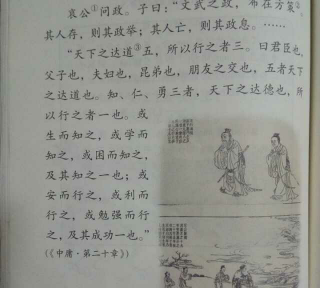 哀公①问政。子曰:“文武之政,布在方策②。
其人存,则其政举;其人亡,则其政息。……
“天下之达道③五,所以行之者三。曰君臣也,
父子也,夫妇也,昆弟也,朋友之交也,五者天下
之达道也。知、仁、勇三者,天下之达德也,所
以行之者一也。或
生而知之,或学而
知之,或困而知之,
及其知之一也;或
安而行之,或利而
行之,或勉强而行
之,及其成功一也。”
(《中庸·第二十章》)